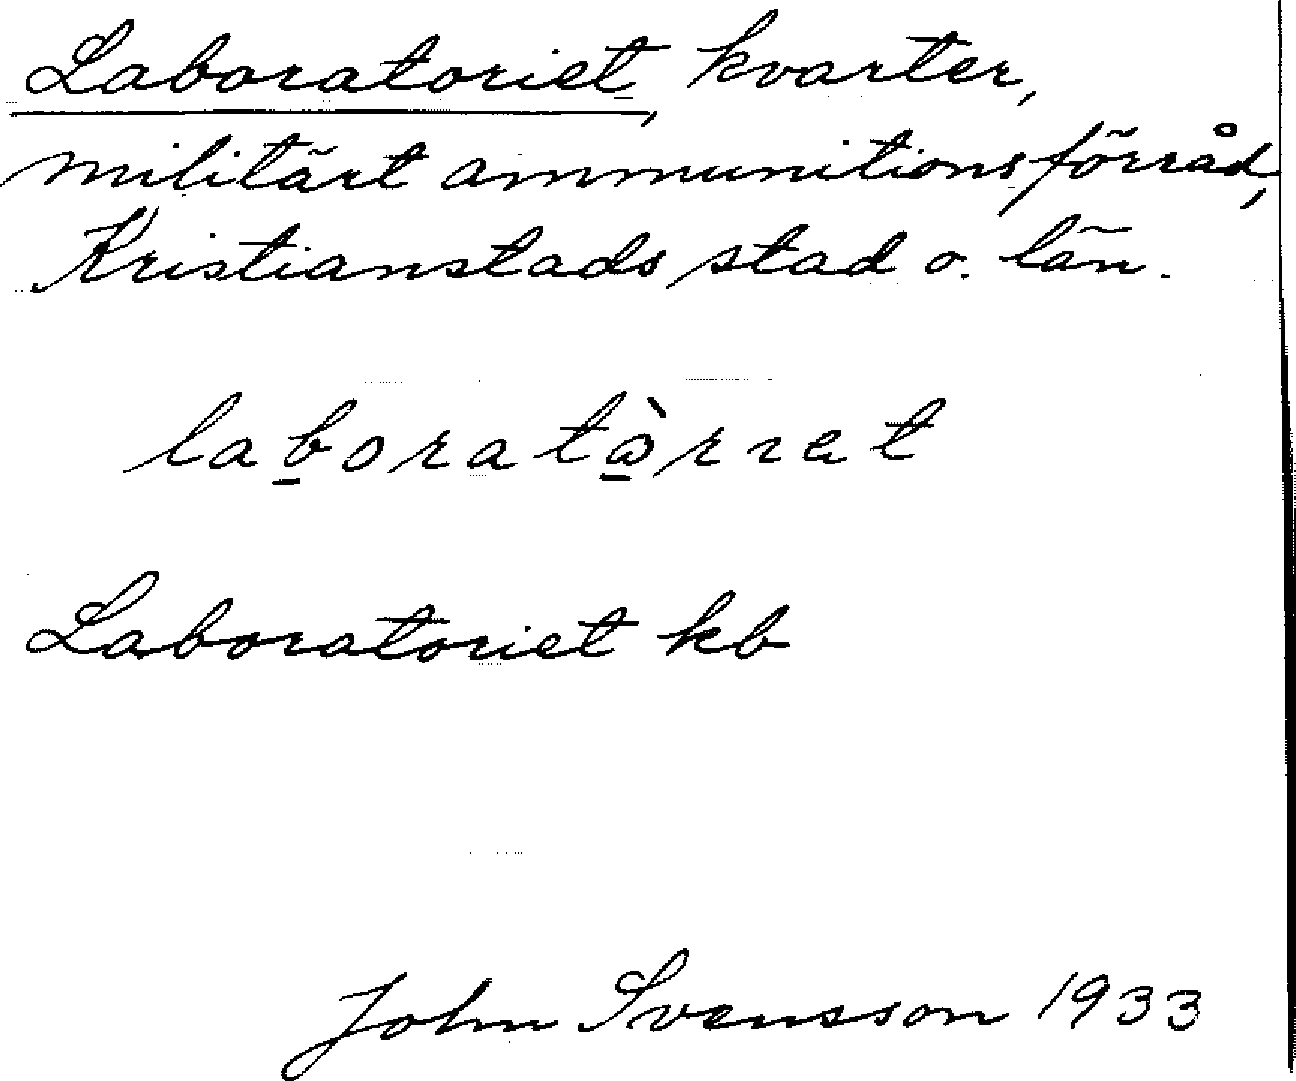 Laboratoriet, kvarter,
militärt ammunitionsförråd,
Kristianstads stad o. län.
laboratòrɩet
Laboratoriet kb
John Svensson 1933